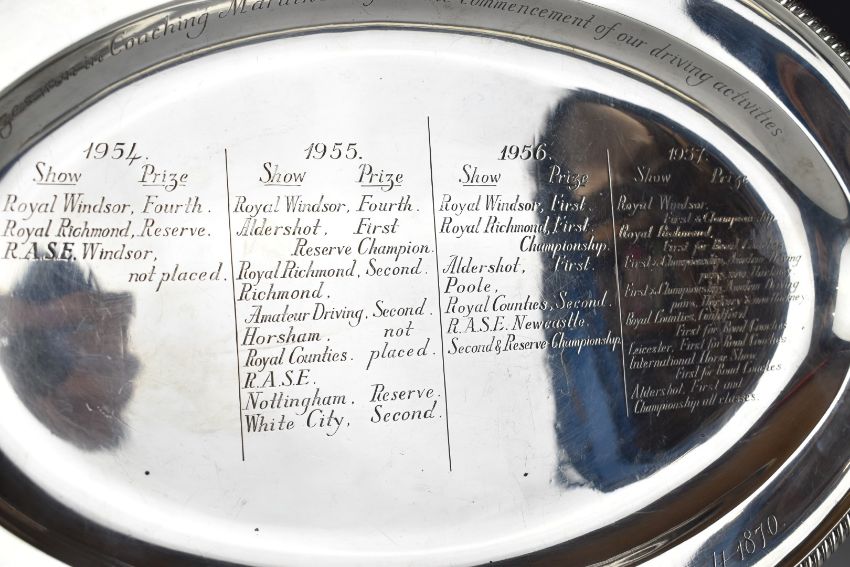 Coaching
commencement of our driving activities
1954.
Show Prize
Royal Windsor, Fourth.
Royal Richmond, Reserve.
R.A.S.E. Windsor,
not placed.
1955.
Show Prize
Royal Windsor, Fourth.
Aldershot, First
Reserve Champion.
Royal Richmond, Second.
Richmond.
Amateur Driving, Second.
Horsham. not
Royal Counties. placed.
R.A.S.E.
Nottingham. Reserve.
White City, Second.
1956.
Show Prize
Royal Windsor, First.
Royal Richmond, First.
Championship.
Aldershot, First.
Poole,
Royal Counties, Second.
R.A.S.E. Newcastle.
Second & Reserve Championship.
1957.
Show Prize
Royal Windsor.
First & Championship
Royal Richmond,
First for Road Coaches
First & Championship, Amateur Driving
First & Championship, Amateur Driving
Royal Counties, Guildford
First for Road Coaches
Leicester, First for Road Coaches
International Horse Show
First for Road Coaches
Aldershot, First and
Championship all classes.
1870.